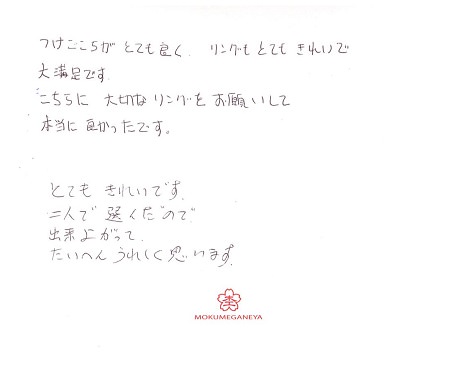 つけごこちがとても良く、リングもとてもきれいで
大満足です。
こちらに大切なリングをお願いして
本当に良かったです。
とてもきれいです。
二人で選んだので
出来上がって、
たいへんうれしく思います。
MOKUMEGANEYA